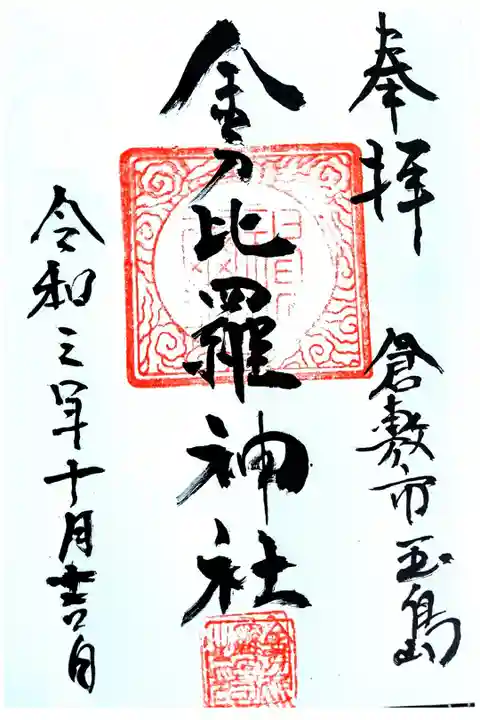 奉拝
倉敷市玉島
金刀比羅神社
令和三年十月吉日